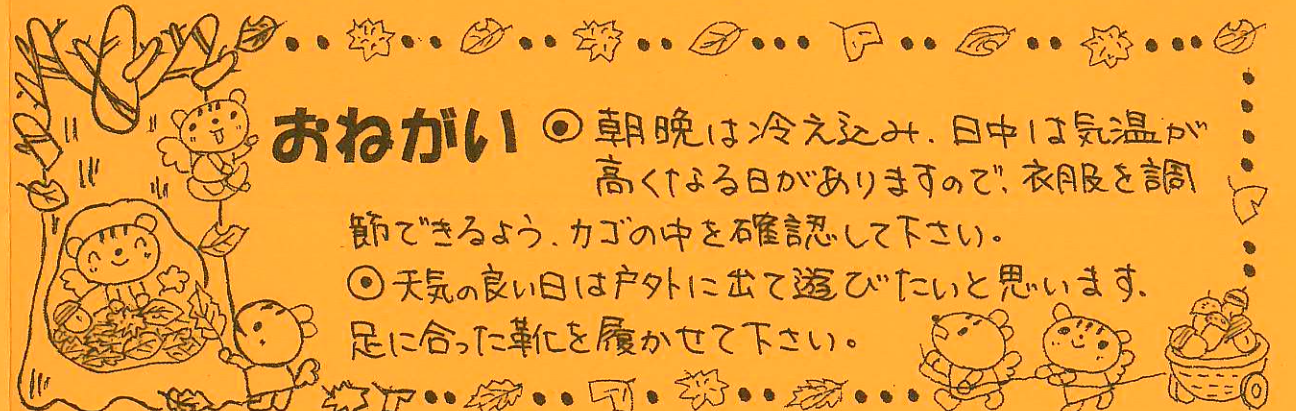 おねがい ◉ 朝晩は冷え込み、日中は気温が
高くなる日がありますので、衣服を調
節できるよう、カゴの中を確認して下さい。
◉ 天気の良い日は戸外に出て遊びたいと思います。
足に合った靴を履かせて下さい。